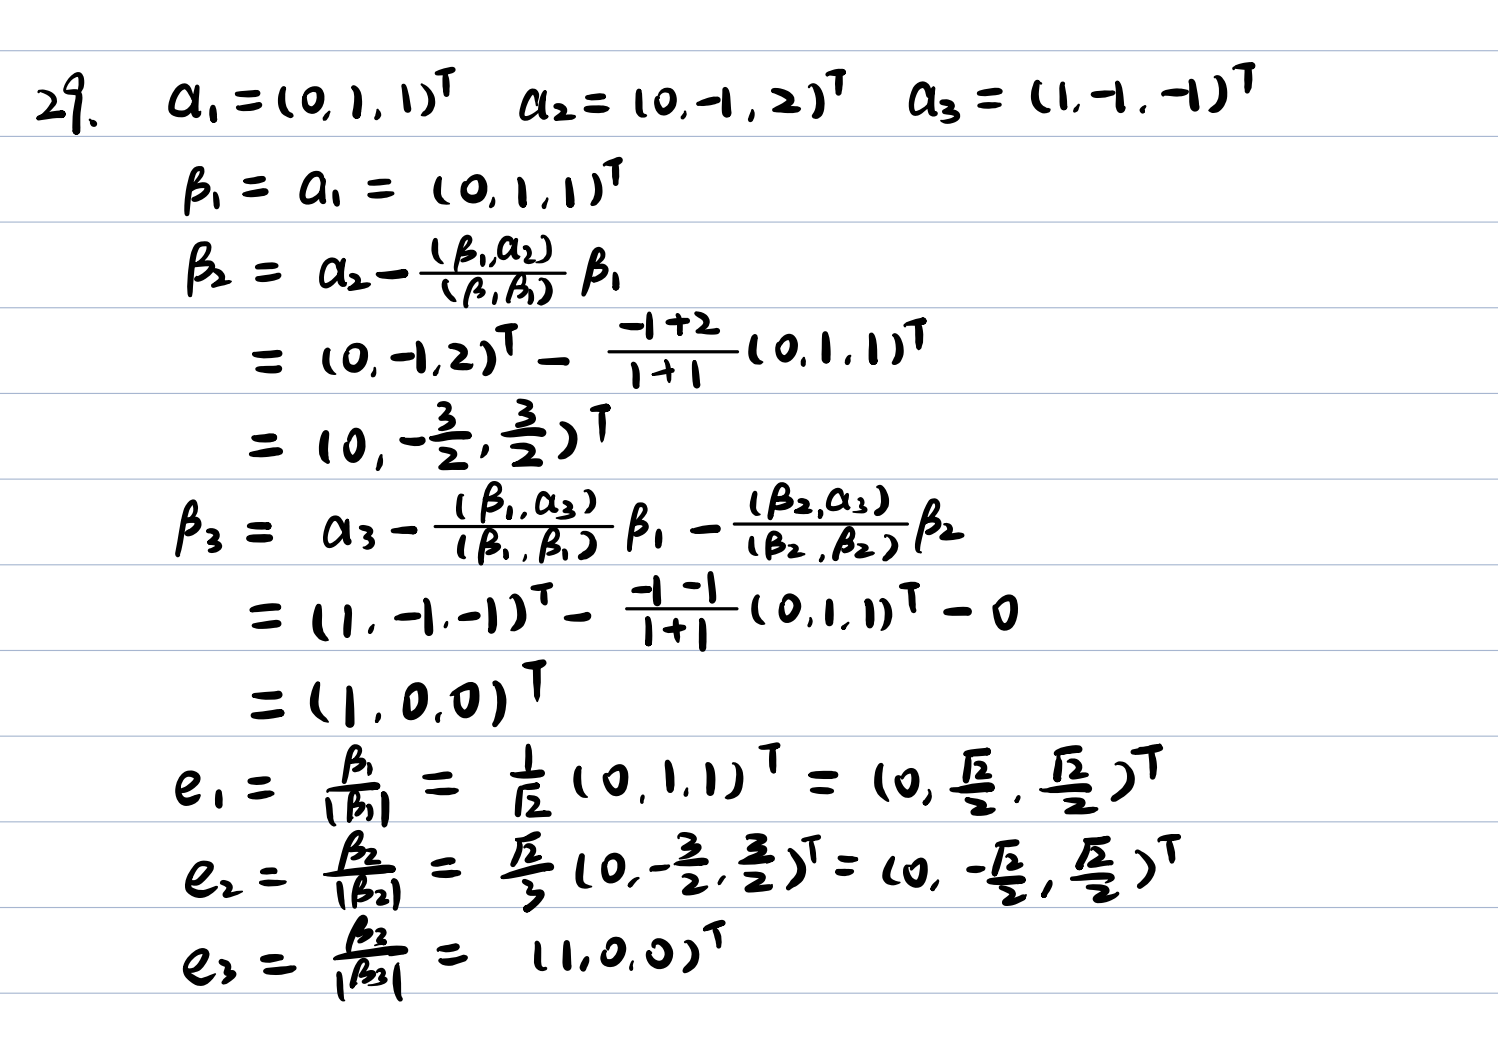 29. α₁ = (0, 1, 1)ᵀ α₂ = (0, -1, 2)ᵀ α₃ = (1, -1, -1)ᵀ
β₁ = α₁ = (0, 1, 1)ᵀ
β₂ = α₂ - \frac{(β₁, α₂)}{(β₁, β₁)} β₁
= (0, -1, 2)ᵀ - \frac{-1+2}{1+1} (0, 1, 1)ᵀ
= (0, -\frac{3}{2}, \frac{3}{2})ᵀ
β₃ = α₃ - \frac{(β₁, α₃)}{(β₁, β₁)} β₁ - \frac{(β₂, α₃)}{(β₂, β₂)} β₂
= (1, -1, -1)ᵀ - \frac{-1-1}{1+1} (0, 1, 1)ᵀ - 0
= (1, 0, 0)ᵀ
e₁ = \frac{β₁}{|β₁|} = \frac{1}{√2} (0, 1, 1)ᵀ = (0, \frac{√2}{2}, \frac{√2}{2})ᵀ
e₂ = \frac{β₂}{|β₂|} = \frac{√2}{3} (0, -\frac{3}{2}, \frac{3}{2})ᵀ = (0, -\frac{√2}{2}, \frac{√2}{2})ᵀ
e₃ = \frac{β₂}{|β₃|} = (1, 0, 0)ᵀ